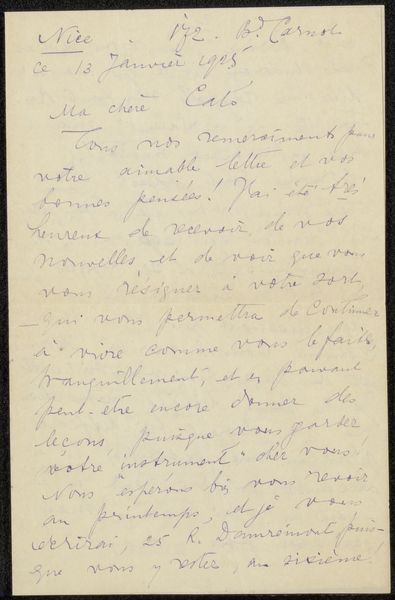 Nice . 172 . Bd Carnot
ce 13 Janvier 1925
Ma chère Cato
Tous nos remerciments pour
votre aimable lettre et vos
bonnes pensées ! J'ai été très
heureux de recevoir de vos
nouvelles et de voir que vous
vous résigner à votre sort,
qui vous permettra de continuer
à vivre comme vous le faites,
tranquillement, et en pouvant
peut-être encore donner des
leçons, puisque vous garder
votre "instrument" chez vous !
Nous espérons bis vous revoir
au printemps, et je vous
ecrirai, 25 R. Damrémont puis-
que vous y restez, au sixième !